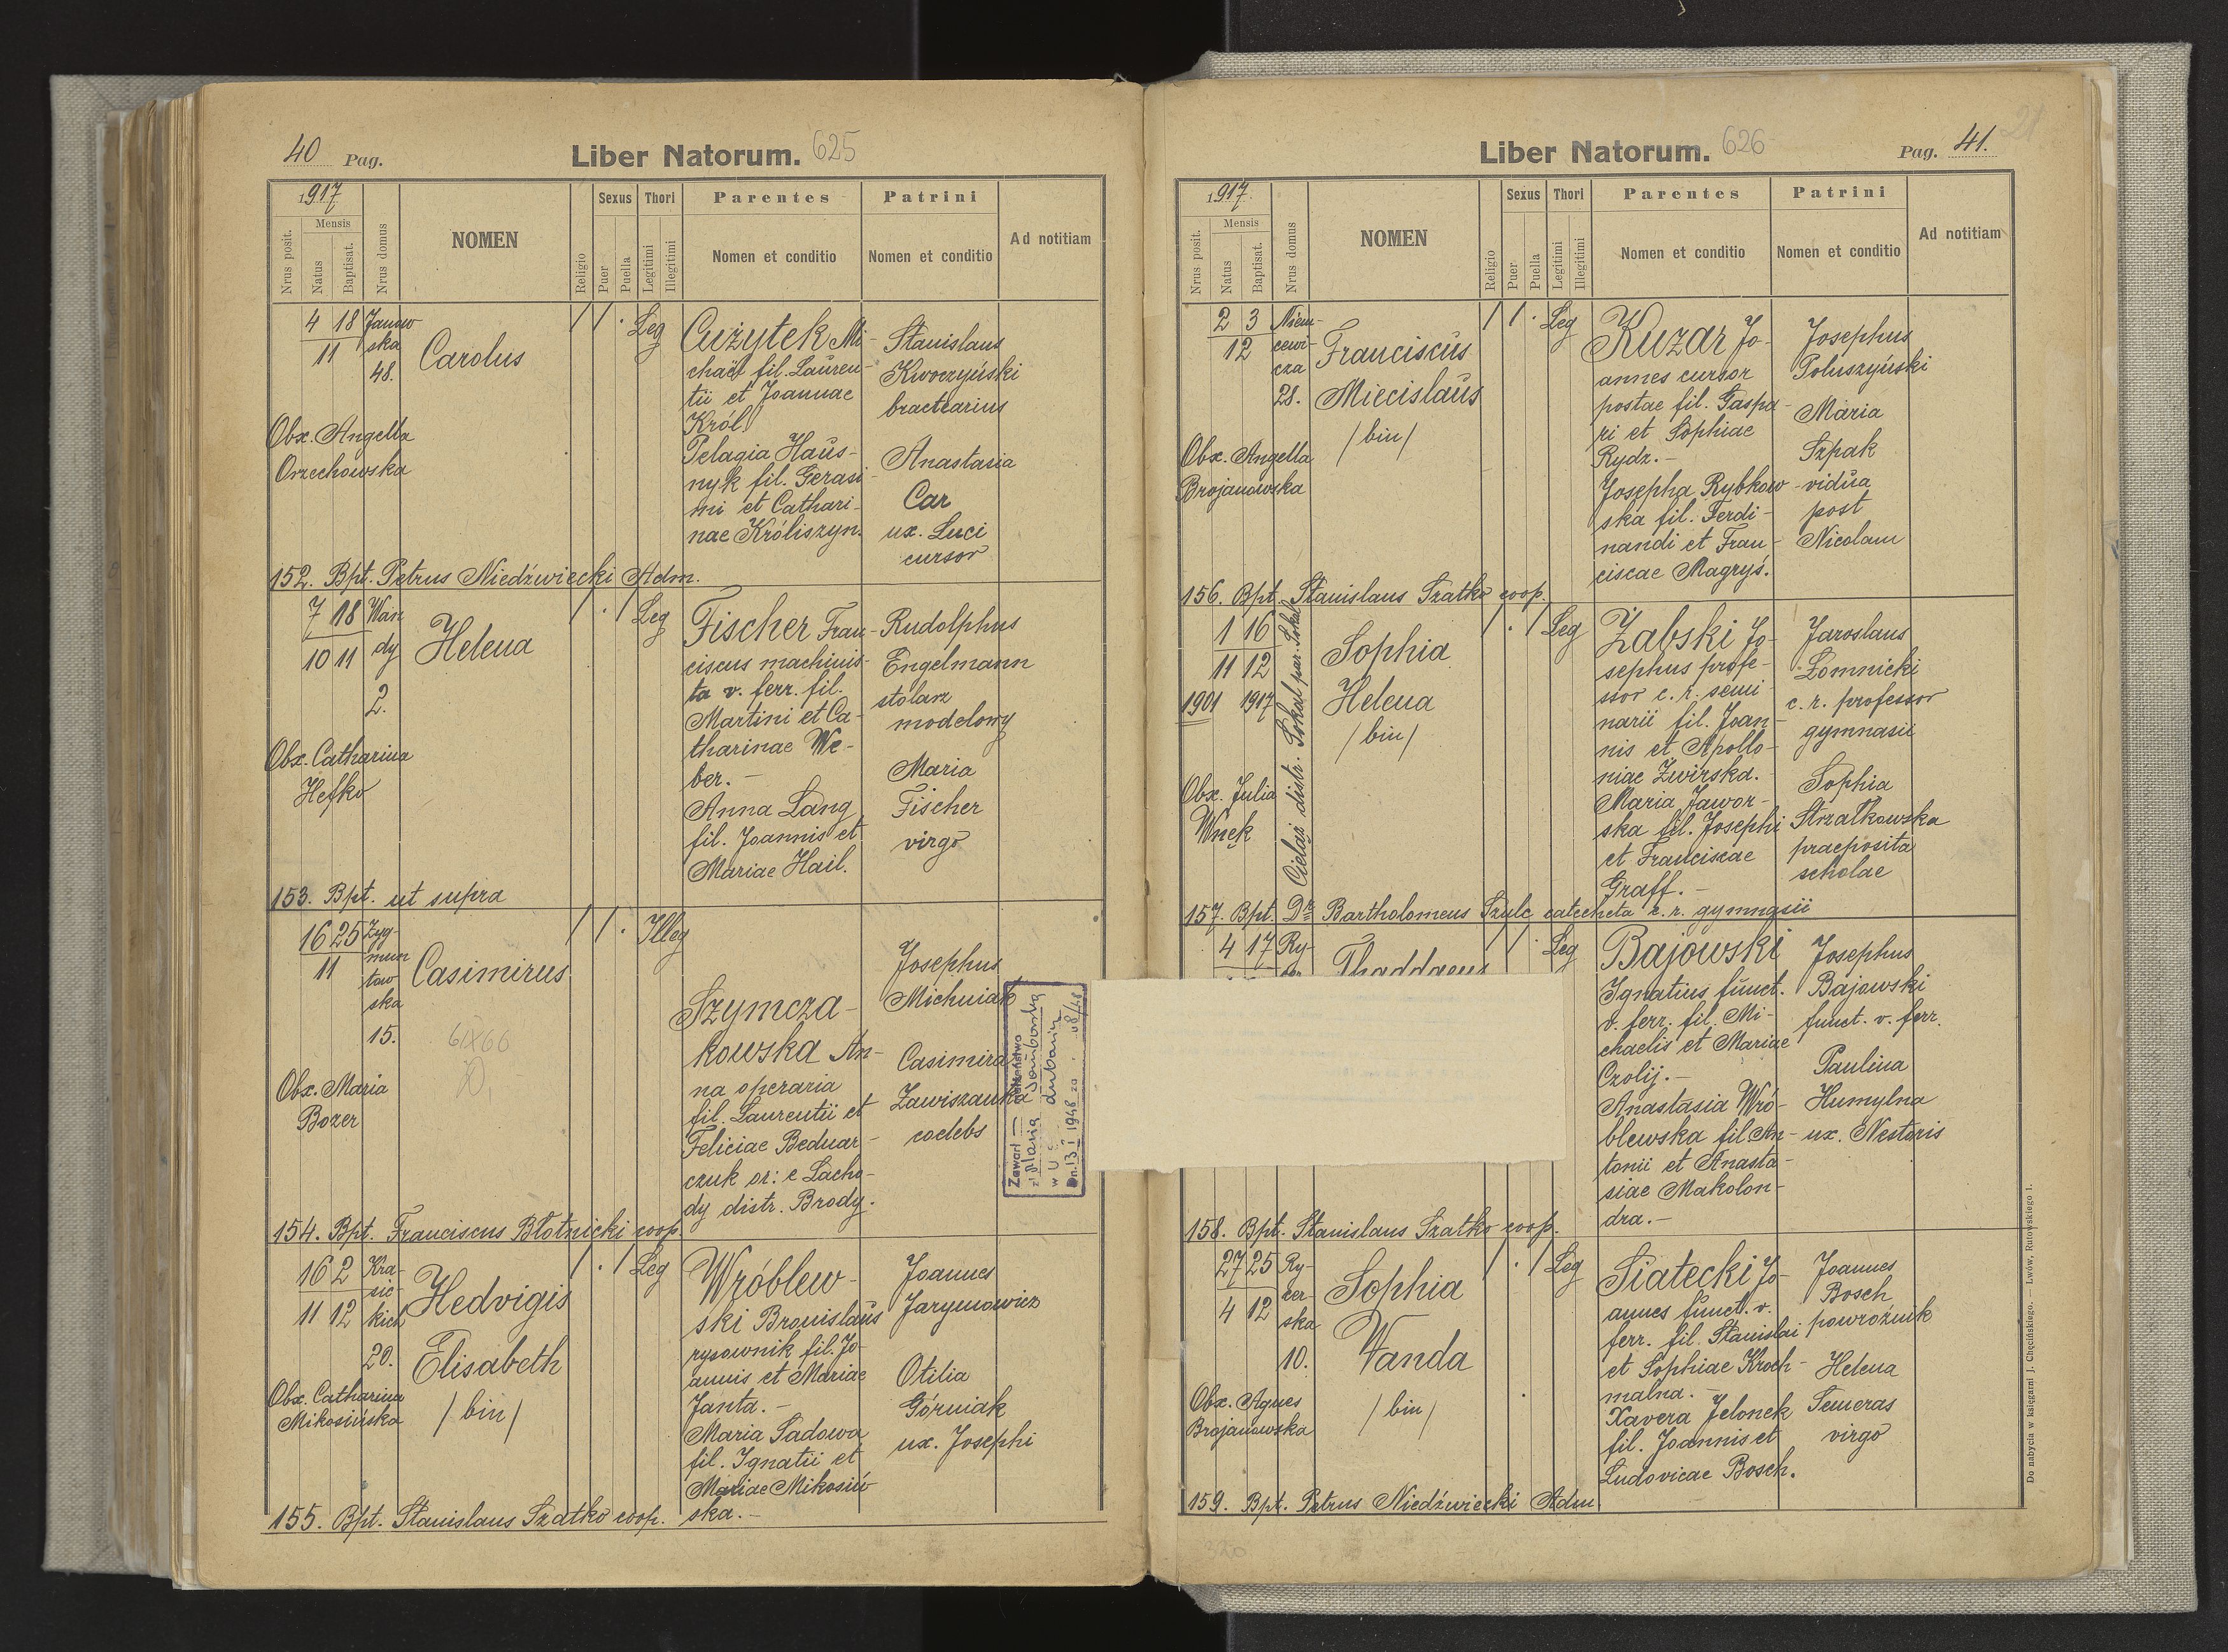 40 Pag.
Liber Natorum. 625
1917
Mensis
Nrus posit.
Natus
Baptisat.
Nrus domus
NOMEN
Religio
Sexus
Puer
Puella
Thori
Legitimi
Illegitimi
Parentes
Nomen et conditio
Patrini
Nomen et conditio
Ad notitiam
4 18 Janow
11 ska
48.
Carolus
Obx. Angella
Orzechowska
1 1 · Leg
Cużytek Mi-
chaël fil. Lauren-
tii et Joannae
Król.
Pelagia Haus-
nyk fil. Gerasi-
mi et Cathari-
nae Króliszyn.
Stanislaus
Kwoczyński
bractearius
Anastasia
Car
ux. Luci
cursor
152. Bpt. Petrus Niedźwiecki Adm.
7 18 Wan
10 11 dy
2.
Helena
Obx. Catharina
Hefko
1 · 1 Leg
Fischer Fran-
ciscus machinis-
ta v. ferr. fil.
Martini et Ca-
tharinae We-
ber. –
Anna Lang
fil. Joannis et
Mariae Hail.
Rudolphus
Engelmann
stolarz
modelowy
Maria
Fischer
virgo
153. Bpt. ut supra
16 25 Zyg-
11 mun
tow
ska
15.
Casimirus
Obx. Maria
Bozer
1 1 · Illeg
Szymcza-
kowska An-
na operaria
fil. Laurentii et
Feliciae Bednar-
czuk or: e Lacho-
dy distr. Brody.
Josephus
Michniak
Casimira
Zawiszanka
coelebs
Zawarł małżeństwo
154. Bpt. Franciscus Błotnicki coop.
16 2 Kra-
sic-
11 12 kich
20.
Hedvigis
Elisabeth
/ bin /
Obx. Catharina
Mikosińska
1 · 1 Leg
Wróblew-
ski Bronislaus
rysownik fil. Jo-
annis et Mariae
Janta. –
Maria Sadowa
fil. Ignatii et
Mariae Mikosiń-
ska. –
Joannes
Jarymowicz
Otilia
Górniak
ux. Josephi
155. Bpt. Stanislaus Szatko coop.
Liber Natorum. 626
Pag. 41.
1917.
Mensis
Nrus posit.
Natus
Baptisat.
Nrus domus
NOMEN
Religio
Sexus
Puer
Puella
Thori
Legitimi
Illegitimi
Parentes
Nomen et conditio
Patrini
Nomen et conditio
Ad notitiam
2 3 Niem-
12 cewi-
cza
28.
Franciscus
Miecislaus
/ bin /
Obx. Angella
Brojanowska
1 1 · Leg
Kuzar Jo-
annes cursor
postae fil. Gaspa-
ri et Sophiae
Rydz. –
Josepha Rybkow-
ska fil. Ferdi-
nandi et Fran-
ciscae Magryś.
Josephus
Poluszyński
Maria
Szpak
vidua
post
Nicolaum
156. Bpt. Stanislaus Szatko coop.
1 16
11 12
1901 1917
Cieląż distr. Sokal par. Sokal
Sophia
Helena
/ bin /
Obx. Julia
Wnęk
1 · 1 Leg
Żabski Jo-
sephus profe-
ssor c. r. semi-
narii fil. Joan-
nis et Apollo-
niae Zwirska.
Maria Jawor-
ska fil. Josephi
et Franciscae
Graff. –
Jaroslaus
Łomnicki
c. r. professor
gymnasii
Sophia
Strzałkowska
praeposita
scholae
157. Bpt. Dr Bartholomeus Szulc catecheta c. r. gymnasii
4 17 Ry-
Thaddaeus
1 1 · Leg
Bajowski
Ignatius funct.
v. ferr. fil. Mi-
chaelis et Mariae
Czolij. –
Anastasia Wró-
blewska fil. An-
tonii et Anasta-
siae Makolon-
dra. –
Josephus
Bajowski
funct. v. ferr.
Paulina
Humylna
ux. Nestoris
158. Bpt. Stanislaus Szatko coop.
27 25 Ry-
cer-
4 12 ska
10.
Sophia
Wanda
/ bin /
Obx. Agnes
Brojanowska
1 · 1 Leg
Siatecki Jo-
annes funct. v.
ferr. fil. Stanislai
et Sophiae Kroch-
malna. –
Xavera Jelonek
fil. Joannis et
Ludovicae Bosch.
Joannes
Bosch
powroźnik
Helena
Semeras
virgo
159. Bpt. Petrus Niedźwiecki Adm.
Do nabycia w księgarni J. Chęcińskiego. — Lwów, Rutowskiego 1.